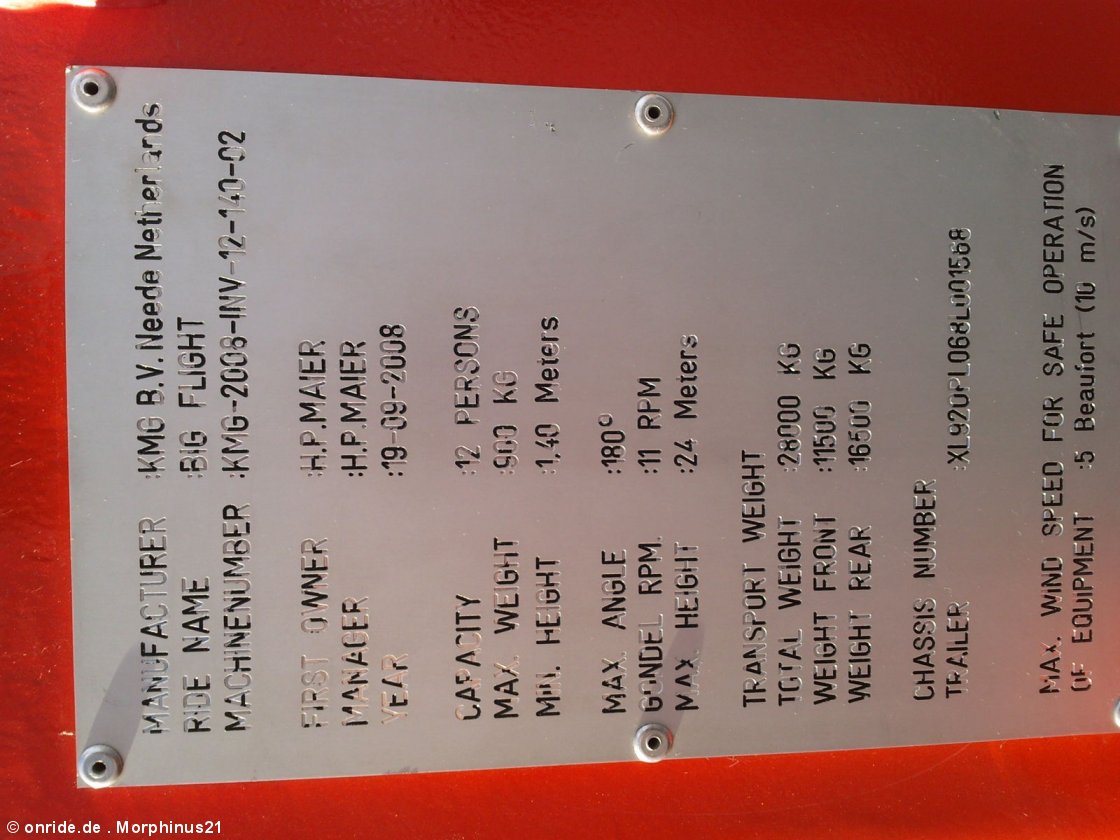 MANUFACTURER :KMG B.V. Neede Netherlands
RIDE NAME :BIG FLIGHT
MACHINENUMBER :KMG-2008-INV-12-140-02
FIRST OWNER :H.P.MAIER
MANAGER :H.P.MAIER
YEAR :19-09-2008
CAPACITY :12 PERSONS
MAX. WEIGHT :900 KG
MIN. HEIGHT :1,40 Meters
MAX. ANGLE :180°
GONDEL RPM. :11 RPM
MAX. HEIGHT :24 Meters
TRANSPORT WEIGHT
TOTAL WEIGHT :28000 KG
WEIGHT FRONT :11500 KG
WEIGHT REAR :16500 KG
CHASSIS NUMBER
TRAILER :XL920PL068L001568
MAX. WIND SPEED FOR SAFE OPERATION
OF EQUIPMENT :5 Beaufort (10 m/s)
© onride.de . Morphinus21